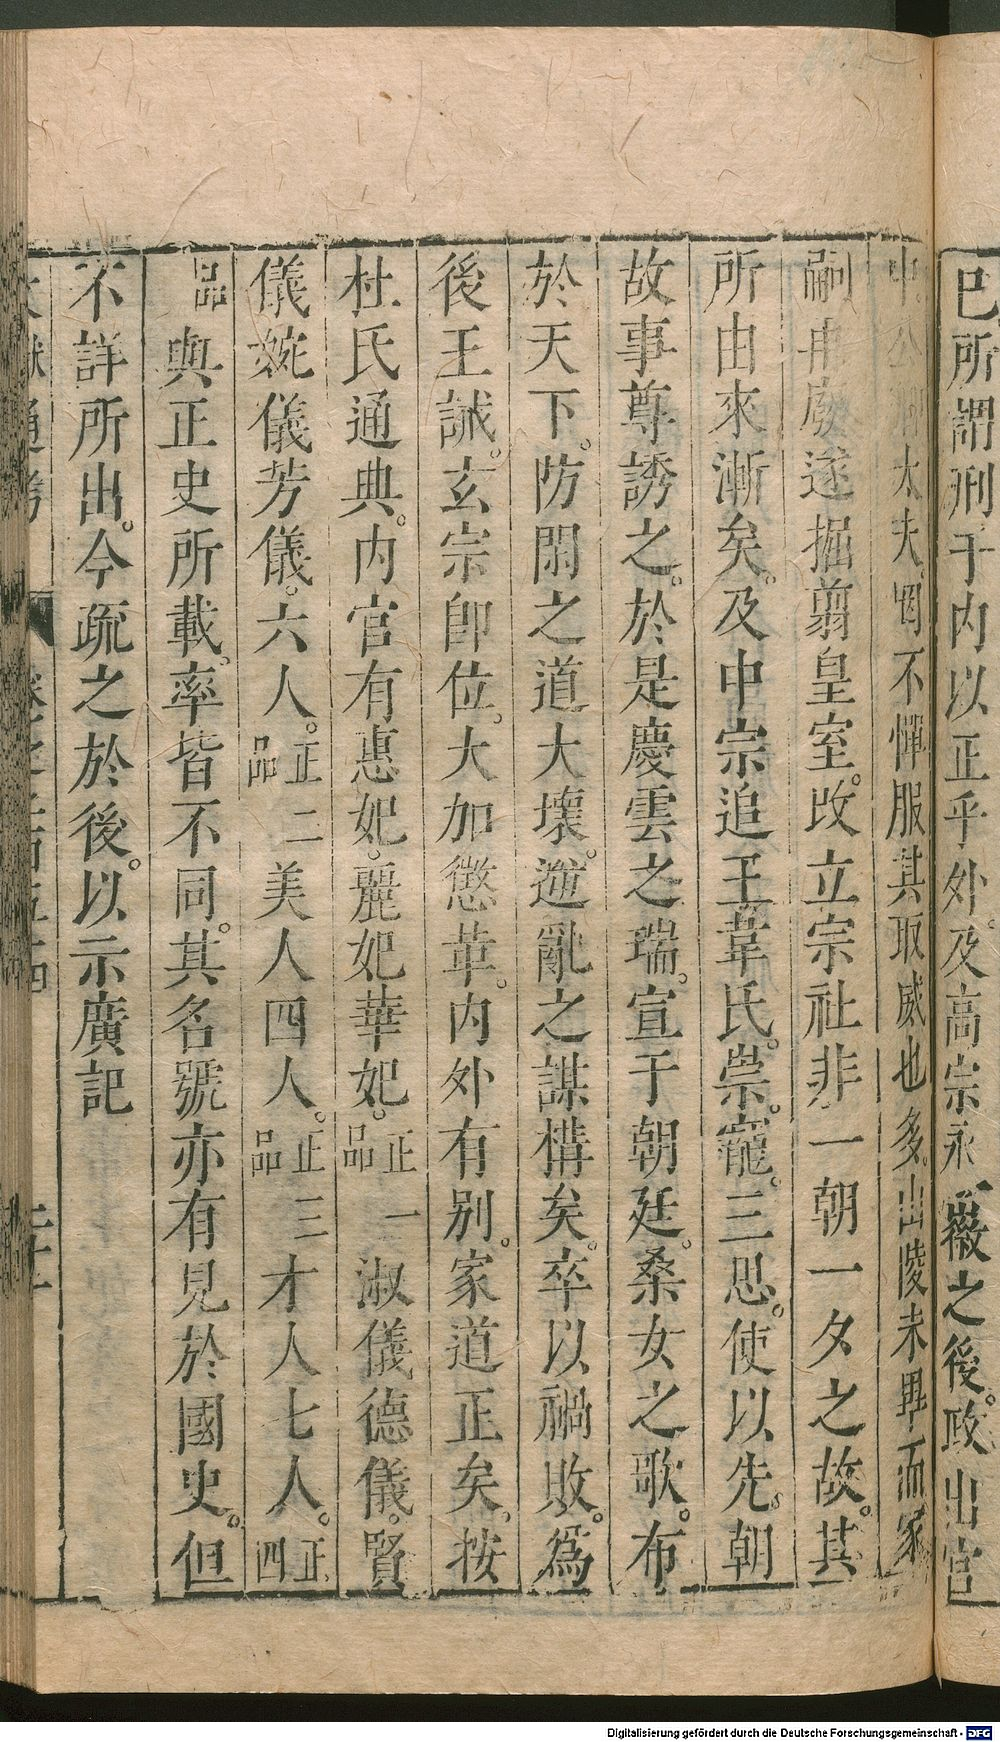 已所謂刑于內以正乎外。及高宗永徽之後。政出宮
中公卿大夫。罔不憚服其取威也多。山陵未畢而家
嗣再廢遂掘翦皇室。改立宗社非一朝一夕之故。其
所由來漸矣。及中宗追王韋氏。崇。寵。三思。使以先。朝
故事尊誘之。於是慶雲之瑞。宣于朝廷。桑女之歌。布
於天下。防閑之道大壞。逆亂之謀構矣。卒以禍敗。爲
後王誡。玄宗卽位。大加懲革。內外有別。家道正矣。按
杜氏通典。內官有惠妃。麗妃華妃。正一品淑儀德儀。賢
儀婉儀芳儀。六人。正二品美人四人。正三品才人七人。正四
品與正史所載。率皆不同。其名號亦有見於國史。但
不詳所出。今疏之於後。以示廣記
通考
Digitalisierung gefördert durch die Deutsche Forschungsgemeinschaft - DFG